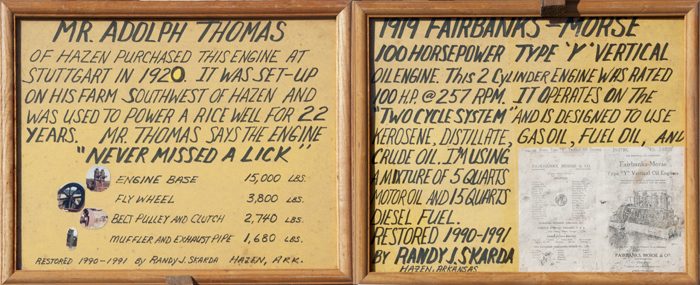 MR. ADOLPH THOMAS
OF HAZEN PURCHASED THIS ENGINE AT
STUTTGART IN 1920. IT WAS SET-UP
ON HIS FARM SOUTHWEST OF HAZEN AND
WAS USED TO POWER A RICE WELL FOR 22
YEARS. MR. THOMAS SAYS THE ENGINE
"NEVER MISSED A LICK"
ENGINE BASE 15,000 LBS.
FLY WHEEL 3,800 LBS.
BELT PULLEY AND CLUTCH 2,740 LBS.
MUFFLER AND EXHAUST PIPE 1,680 LBS.
RESTORED 1990-1991 by RANDY J. SKARDA HAZEN, ARK.
1919 FAIRBANKS-MORSE
100 HORSEPOWER TYPE "Y" VERTICAL
OIL ENGINE. This 2 CYLINDER ENGINE WAS RATED
100 H.P. @ 257 RPM. IT OPERATES ON THE
"TWO CYCLE SYSTEM" AND IS DESIGNED TO USE
KEROSENE, DISTILLATE, GAS OIL, FUEL OIL, AND
CRUDE OIL. I'M USING
A MIXTURE OF 5 QUARTS
MOTOR OIL AND 15 QUARTS
DIESEL FUEL.
RESTORED 1990-1991
BY RANDY J. SKARDA
HAZEN, ARKANSAS
FAIRBANKS, MORSE & CO.
Fairbanks-Morse
Type "Y" Vertical Oil Engines
FAIRBANKS, MORSE & CO.